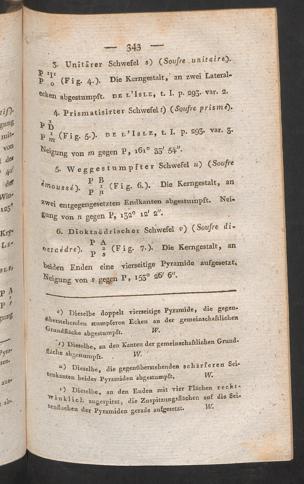 — 343 —
3. Unitärer Schwefel s) (Soufre unitaire).
P ¹E¹
P o (Fig. 4.). Die Kerngestalt, an zwei Lateral-
ecken abgestumpft. DE L'ISLE, t. I. p. 293. var. 2.
4. Prismatisirter Schwefel t) (Soufre prismé).
P D
P m (Fig. 5.). DE L'ISLE, t. I. p. 293. var. 3.
Neigung von m gegen P, 161° 35′ 54″.
5. Weggestumpfter Schwefel u) (Soufre
émoussé). P B
P n (Fig. 6.). Die Kerngestalt, an
zwei entgegengesetzten Endkanten abgestumpft. Nei-
gung von n gegen P, 132° 12′ 2″.
6. Dioktaëdrischer Schwefel v) (Soufre di-
octaèdre). P A
P s (Fig. 7.). Die Kerngestalt, an
beiden Enden eine vierseitige Pyramide aufgesetzt,
Neigung von s gegen P, 153° 26′ 6″.
s) Dieselbe doppelt vierseitige Pyramide, die gegen-
überstehenden stumpferen Ecken an der gemeinschaftlichen
Grundfläche abgestumpft. W.
t) Dieselbe, an den Kanten der gemeinschaftlichen Grund-
fläche abgestumpft. W.
u) Dieselbe, die gegenüberstehenden schärferen Sei-
tenkanten beider Pyramiden abgestumpft. W.
v) Dieselbe, an den Enden mit vier Flächen recht-
winklich zugespitzt, die Zuspitzungsflächen auf die Sei-
tenflächen der Pyramiden gerade aufgesetzt. W.